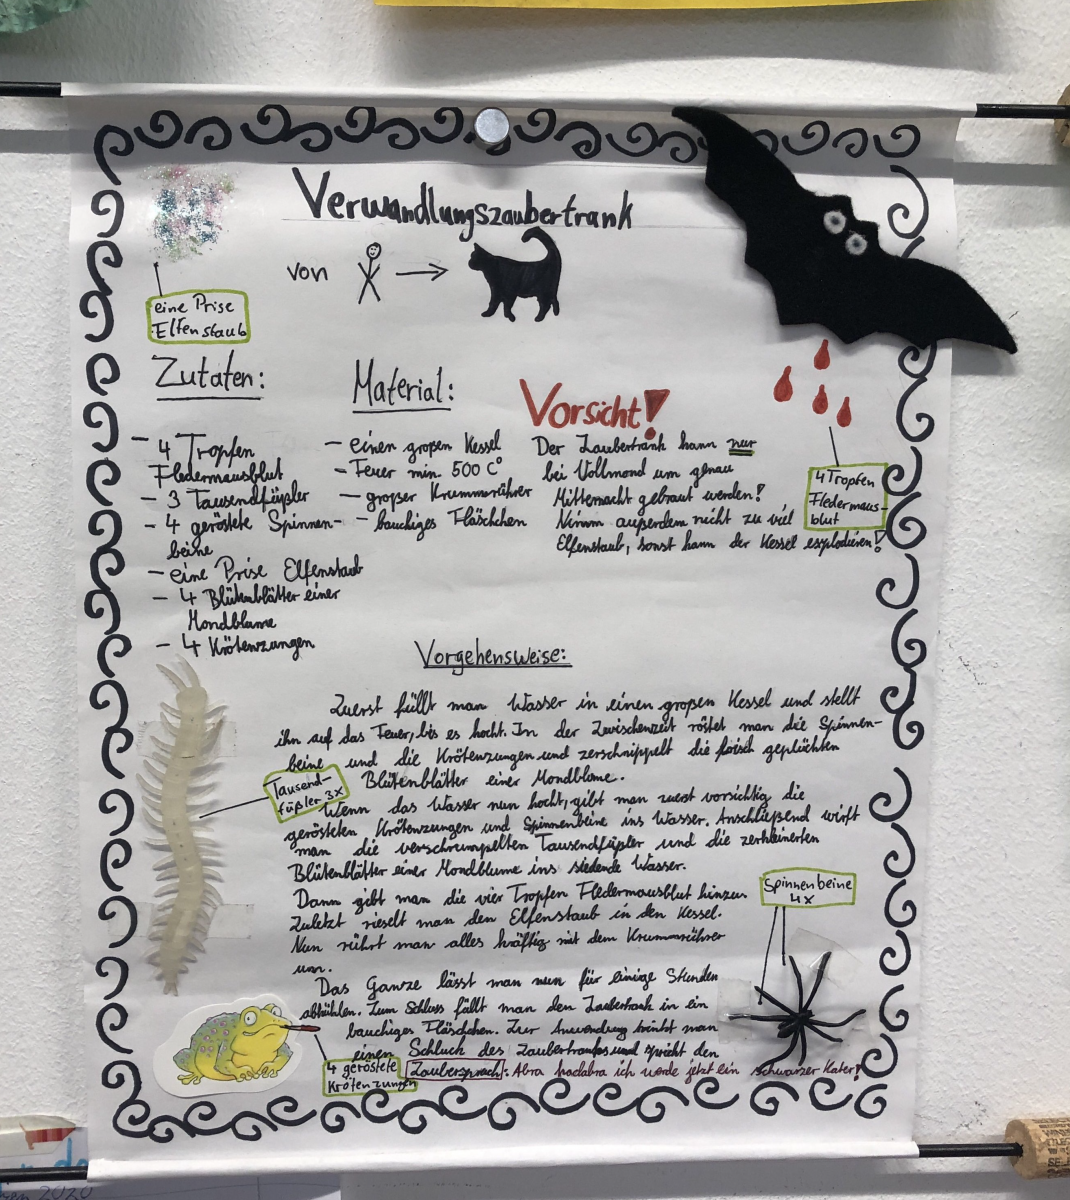 Verwandlungszaubertrank
von
eine Prise
Elfenstaub
Zutaten:
- 4 Tropfen
Fledermausblut
- 3 Tausendfüßler
- 4 geröstete Spinnen-
beine
- eine Prise Elfenstaub
- 4 Blütenblätter einer
Mondblume
- 4 Krötenzungen
Material:
- einen großen Kessel
- Feuer min. 500 C°
- großer Krummrührer
- bauchiges Fläschchen
Vorsicht!
Der Zaubertrank kann nur
bei Vollmond um genau
Mitternacht gebraut werden!
Nimm außerdem nicht zu viel
Elfenstaub, sonst kann der Kessel explodieren!
4 Tropfen
Fledermaus-
blut
Vorgehensweise:
Zuerst füllt man Wasser in einen großen Kessel und stellt
ihn auf das Feuer, bis es kocht. In der Zwischenzeit röstet man die Spinnen-
beine und die Krötenzungen und zerschnippelt die frisch geplückten
Blütenblätter einer Mondblume.
Wenn das Wasser nun kocht, gibt man zuerst vorsichtig die
gerösteten Krötenzungen und Spinnenbeine ins Wasser. Anschließend wirft
man die verschrumpelten Tausendfüßler und die zerkleinerten
Blütenblätter einer Mondblume ins siedende Wasser.
Dann gibt man die vier Tropfen Fledermausblut hinzu.
Zuletzt rieselt man den Elfenstaub in den Kessel.
Nun rührt man alles kräftig mit dem Krummrührer
um.
Das Ganze lässt man nun für einige Stunden
abkühlen. Zum Schluss füllt man den Zaubertrank in ein
bauchiges Fläschchen. Zur Anwendung trinkt man
einen Schluck des Zaubertrankes und spricht den
Zauberspruch: Abra kadabra ich werde jetzt ein schwarzer Kater!
Tausend-
füßler 3x
Spinnenbeine
4x
4 geröstete
Krötenzungen